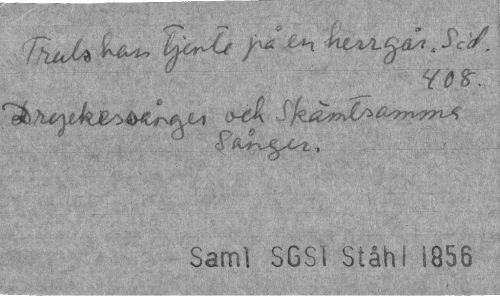 Truls han tjente på en herrgår. Sid.
408.
Dryckesvånger och Skämtsamma
Sånger.
Saml SGS1 Ståhl 1856